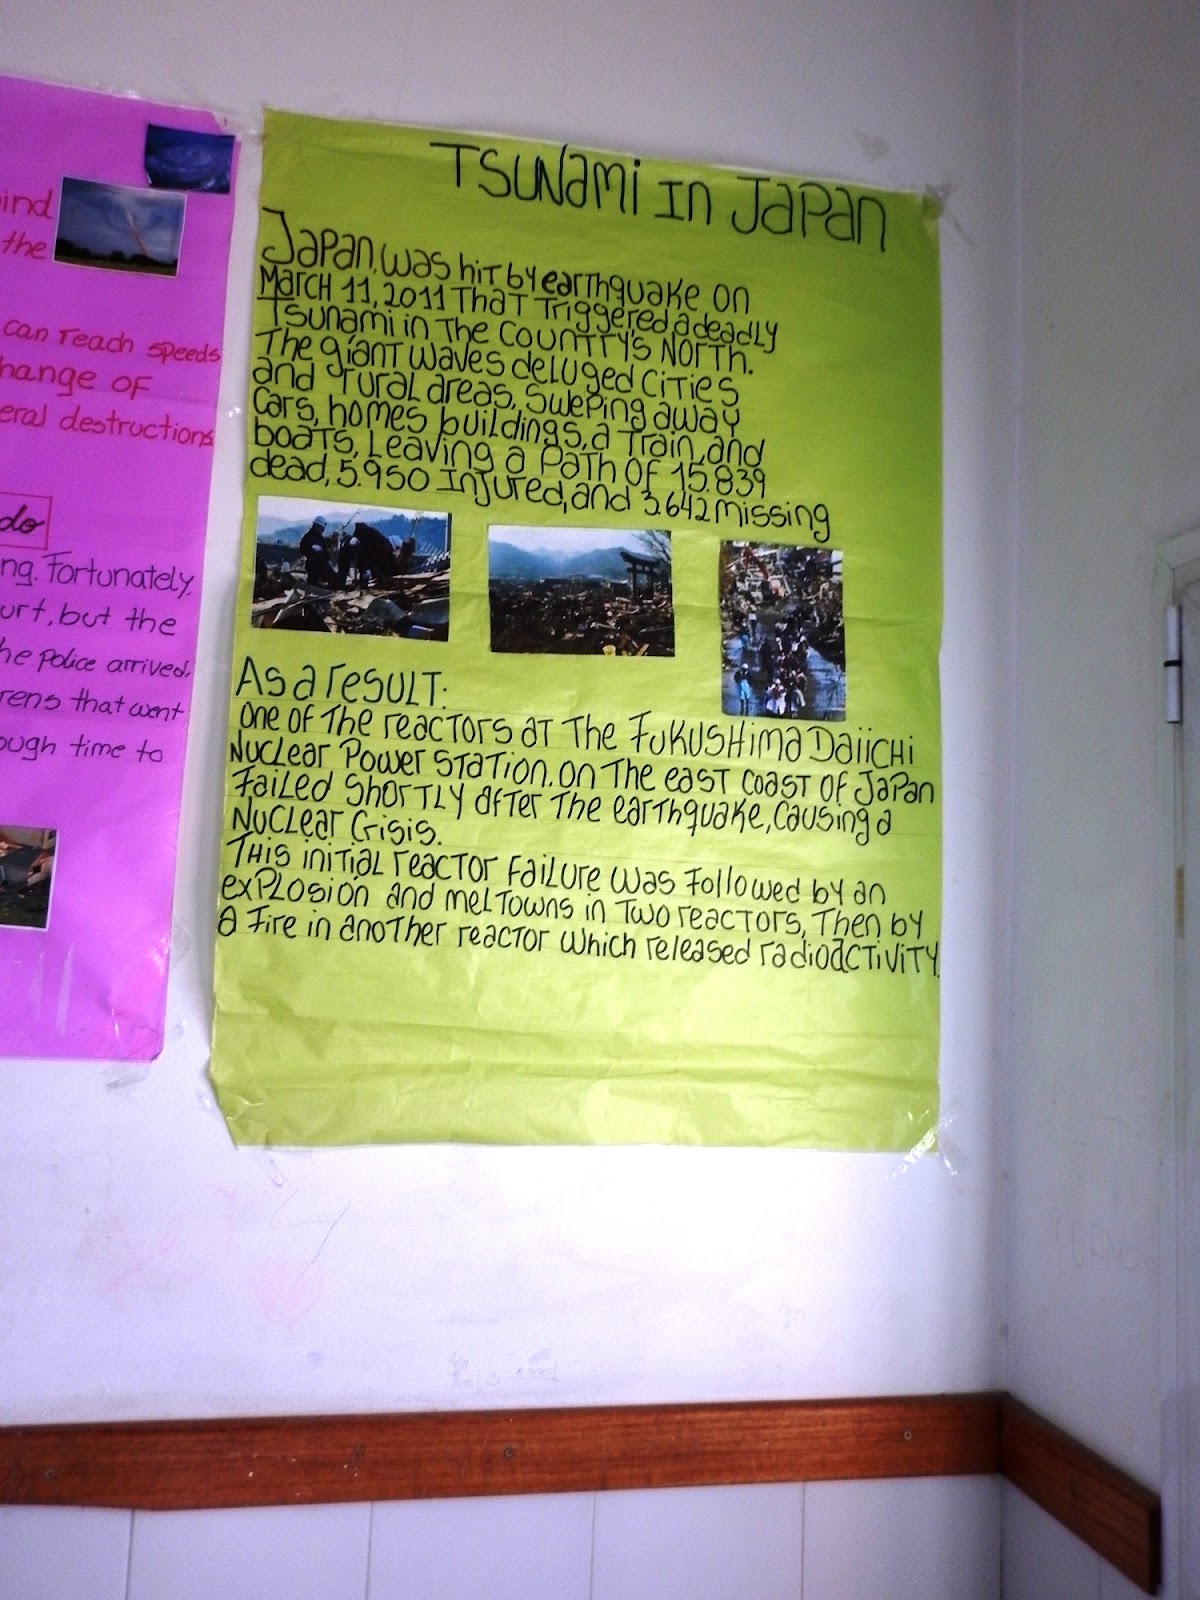 ind
the
can reach speeds
hange of
eral destructions
do
ng. Fortunately,
urt, but the
he Police arrived,
rens that went
ough time to
Tsunami in Japan
Japan, was hit by earthquake on
March 11, 2011 That Triggered, a deadly
Tsunami in The Country's North.
The giant waves deluged Cities
and rural areas, Sweping away
Cars, homes buildings, a Train, and
boats, Leaving a Path Of 15.839
dead, 5.950 Injured, and 3.642 missing
As a result:
One of The reactors at The Fukushima Daiichi
Nuclear Power Station. on The east coast of Japan
Failed Shortly after The earthquake, causing a
Nuclear Crisis.
This initial reactor Failure was followed by an
explosión and melTowns in Two reactors, Then by
a fire in another reactor which released radioactivity.